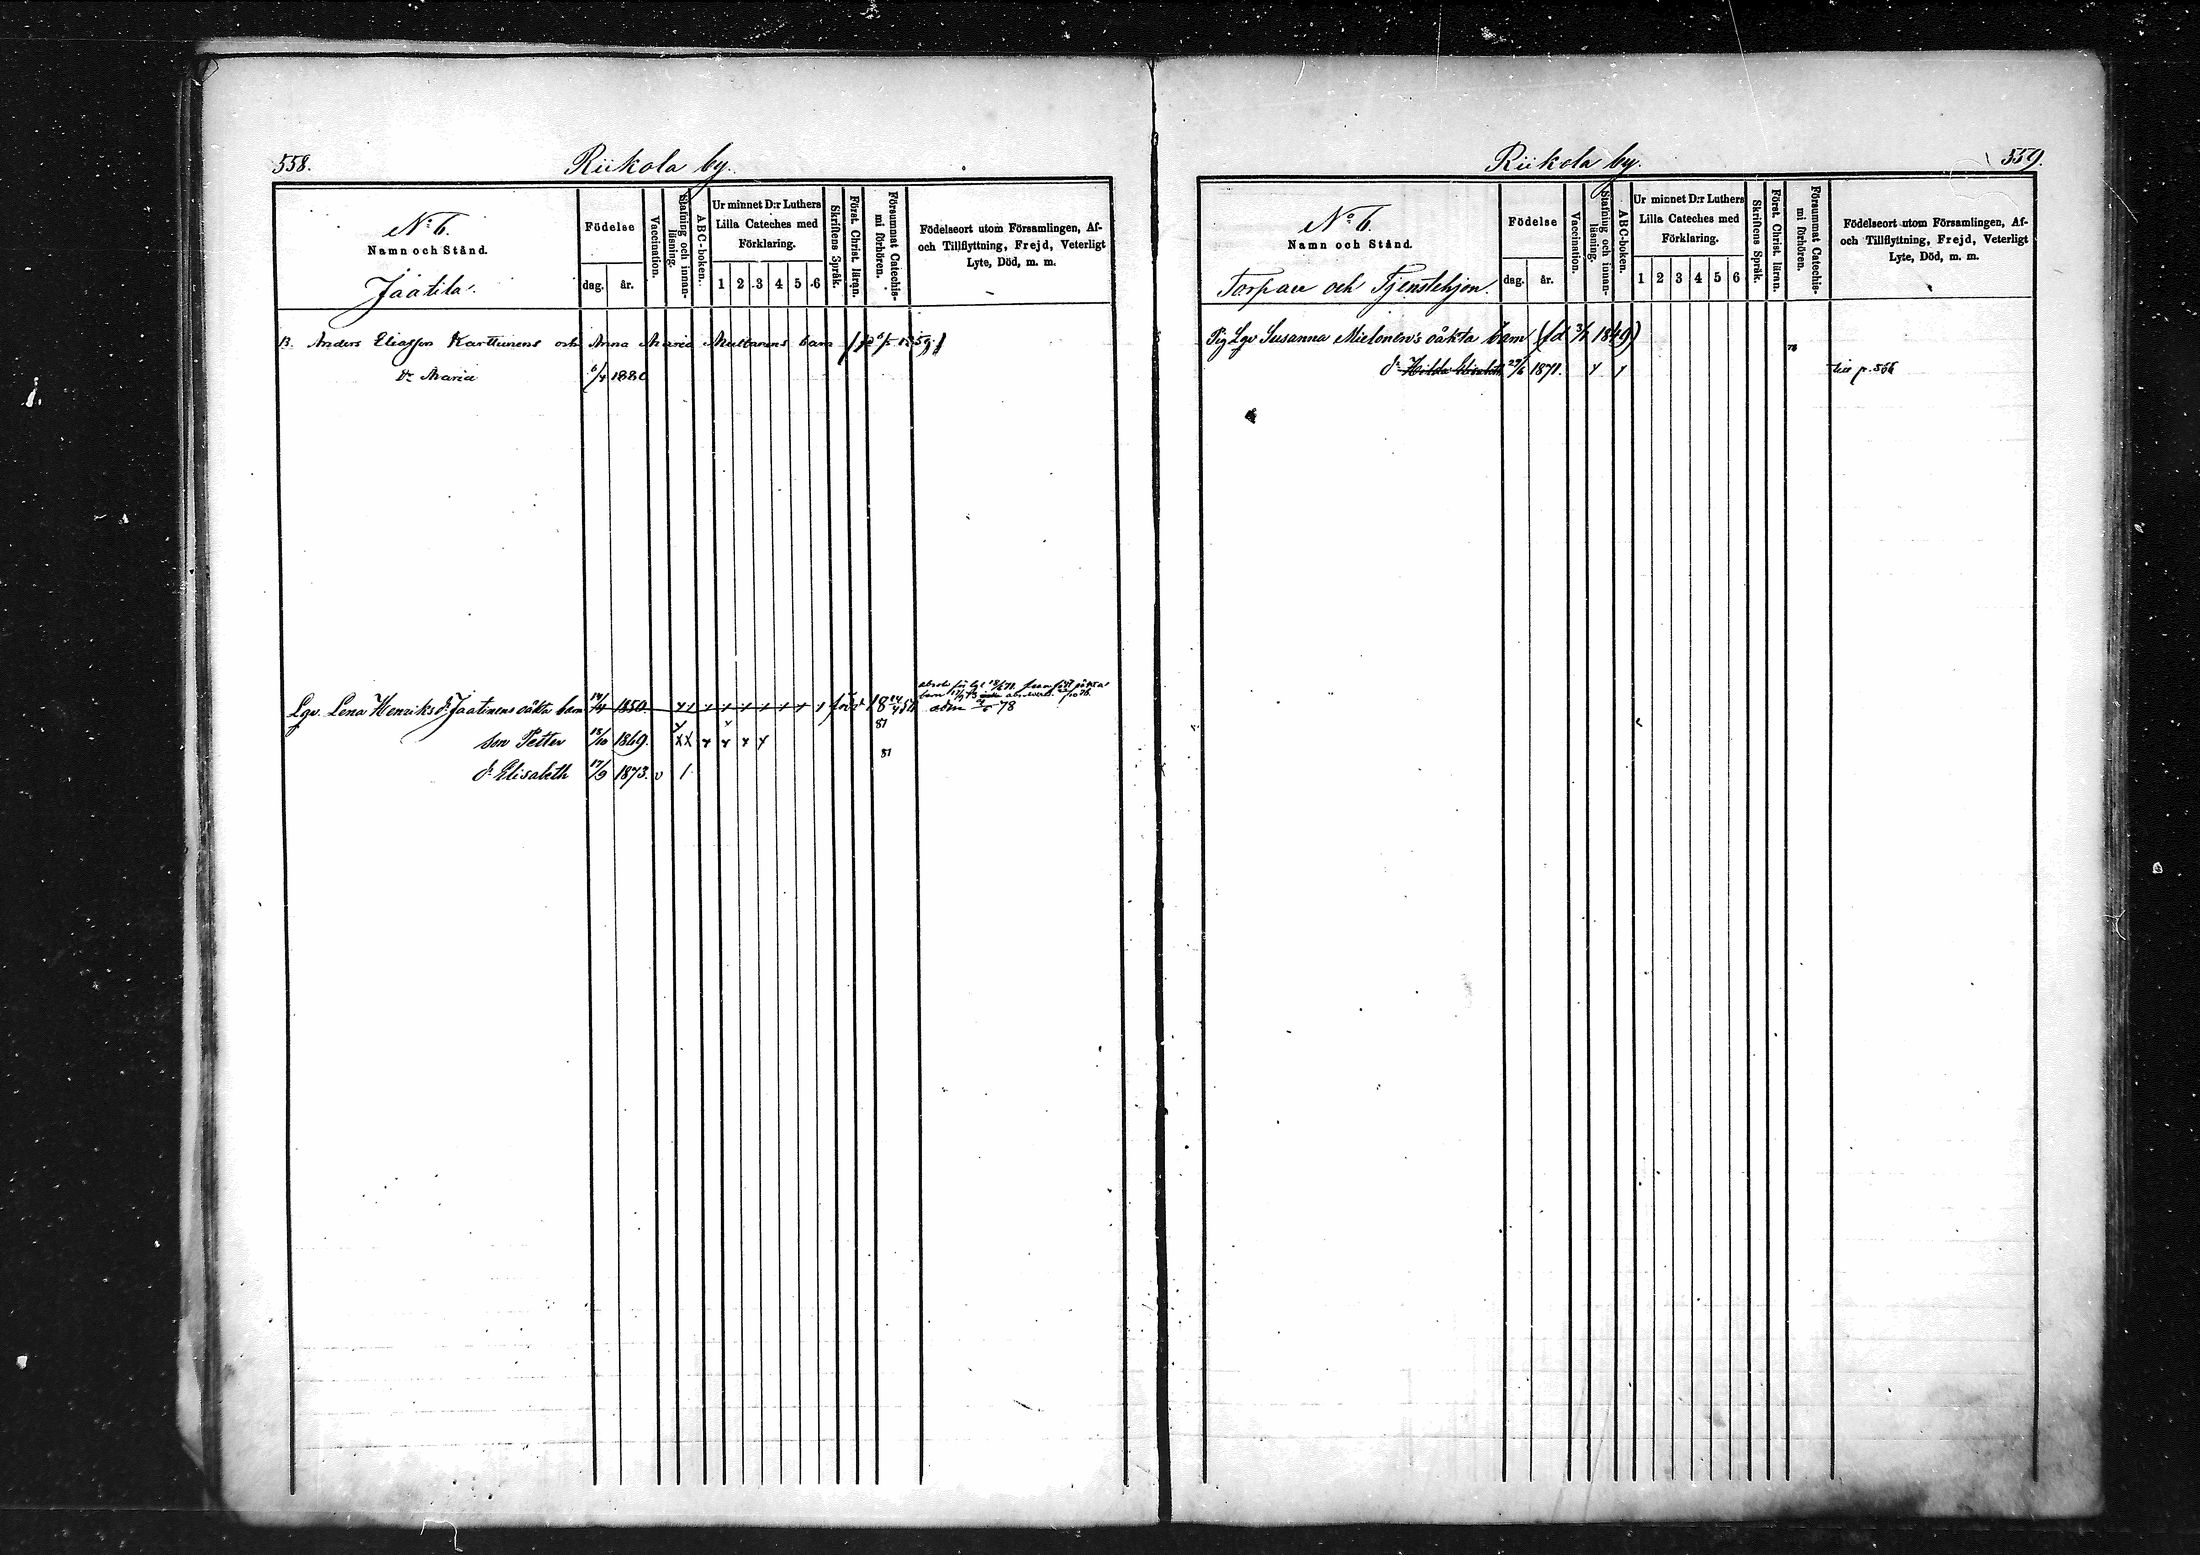 558.
Riikola by.
No 6.
Namn och Stånd.
Jaatila.
Födelse
dag.
år.
Vaccination.
Stafning och innan-
läsning.
ABC-boken.
Ur minnet D:r Luthers
Lilla Cateches med
Förklaring.
1 2 3 4 5 6
Skriftens Språk.
Först. Christ. läran.
Försummat Catechis-
mi förhören.
Födelseort utom Församlingen, Af-
och Tillflyttning, Frejd, Veterligt
Lyte, Död, m. m.
B. Anders Eliasson Karttunens och Anna Maria Muttarens barn
Dr Maria 6/4 1880
Lgv. Lena Henriksdr Jaatinens oäkta barn 14/4 1850.
barn 17/9 73
78
81
son Petter 15/10 1869. X X
81
dr Elisabeth 17/9 1873. v /
559.
Riikola by.
No 6.
Namn och Stånd.
Torpare och Tjenstehjon.
Födelse
dag.
år.
Vaccination.
Stafning och innan-
läsning.
ABC-boken.
Ur minnet D:r Luthers
Lilla Cateches med
Förklaring.
1 2 3 4 5 6
Skriftens Språk.
Först. Christ. läran.
Försummat Catechis-
mi förhören.
Födelseort utom Församlingen, Af-
och Tillflyttning, Frejd, Veterligt
Lyte, Död, m. m.
Pig Lgv Susanna Mielonen's oäkta barn (fd 3/7 1849)
78
dr Hilda Elisabeth 27/6 1871. p. 566